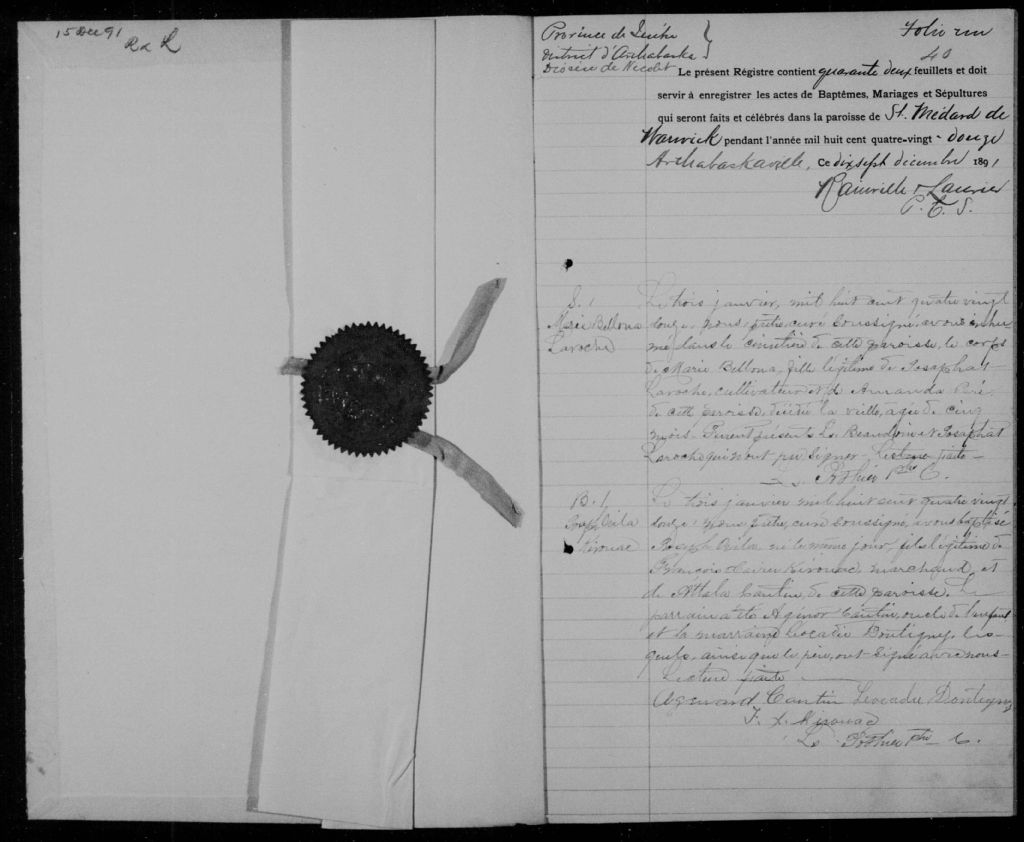 15 Dec 91
R & L
Province de Québec
District d'Arthabaska
Diocèse de Nicolet
Folio un
40
Le présent Régistre contient quarante deux feuillets et doit
servir à enregistrer les actes de Baptêmes, Mariages et Sépultures
qui seront faits et célébrés dans la paroisse de St. Médard de
Warwick pendant l'année mil huit cent quatre-vingt-douze
Arthabaskaville, Ce dix sept décembre 1891
Rainville & Laurier
P. C. S.
S. 1
Marie Bellona
Laroche
Le trois janvier, mil huit cent quatre vingt
douze, nous, prêtre, curé soussigné, avons inhu-
mé dans le cimetière de cette paroisse, le corps
de Marie Bellona, fille légitime de Josaphat
Laroche, cultivateur et de Amanda
de cette paroisse, décédée la veille, agée de cinq
mois. Furent présents Ls Beaudoin et Josaphat
Laroche qui n'ont pu signer. Lecture faite
Ls. Pothier Ptre C.
B. 1
Joseph Avila
Kirouac
Le trois janvier mil huit cent quatre vingt
douze, nous, prêtre, curé soussigné, avons baptisé
Joseph Avila, né le même jour, fils légitime de
François Xavier Kirouac, marchand, et
de Attala Cantin, de cette paroisse. Le
parrain a été Agénor Cantin, oncle de l'enfant
et la marraine Léocadie Dontigny, les-
quels, ainsi que le père, ont signé avec nous
Lecture faite
Cantin Leocadie Dontigny
F. X. Kirouac
Ls. Pothier Ptre C.